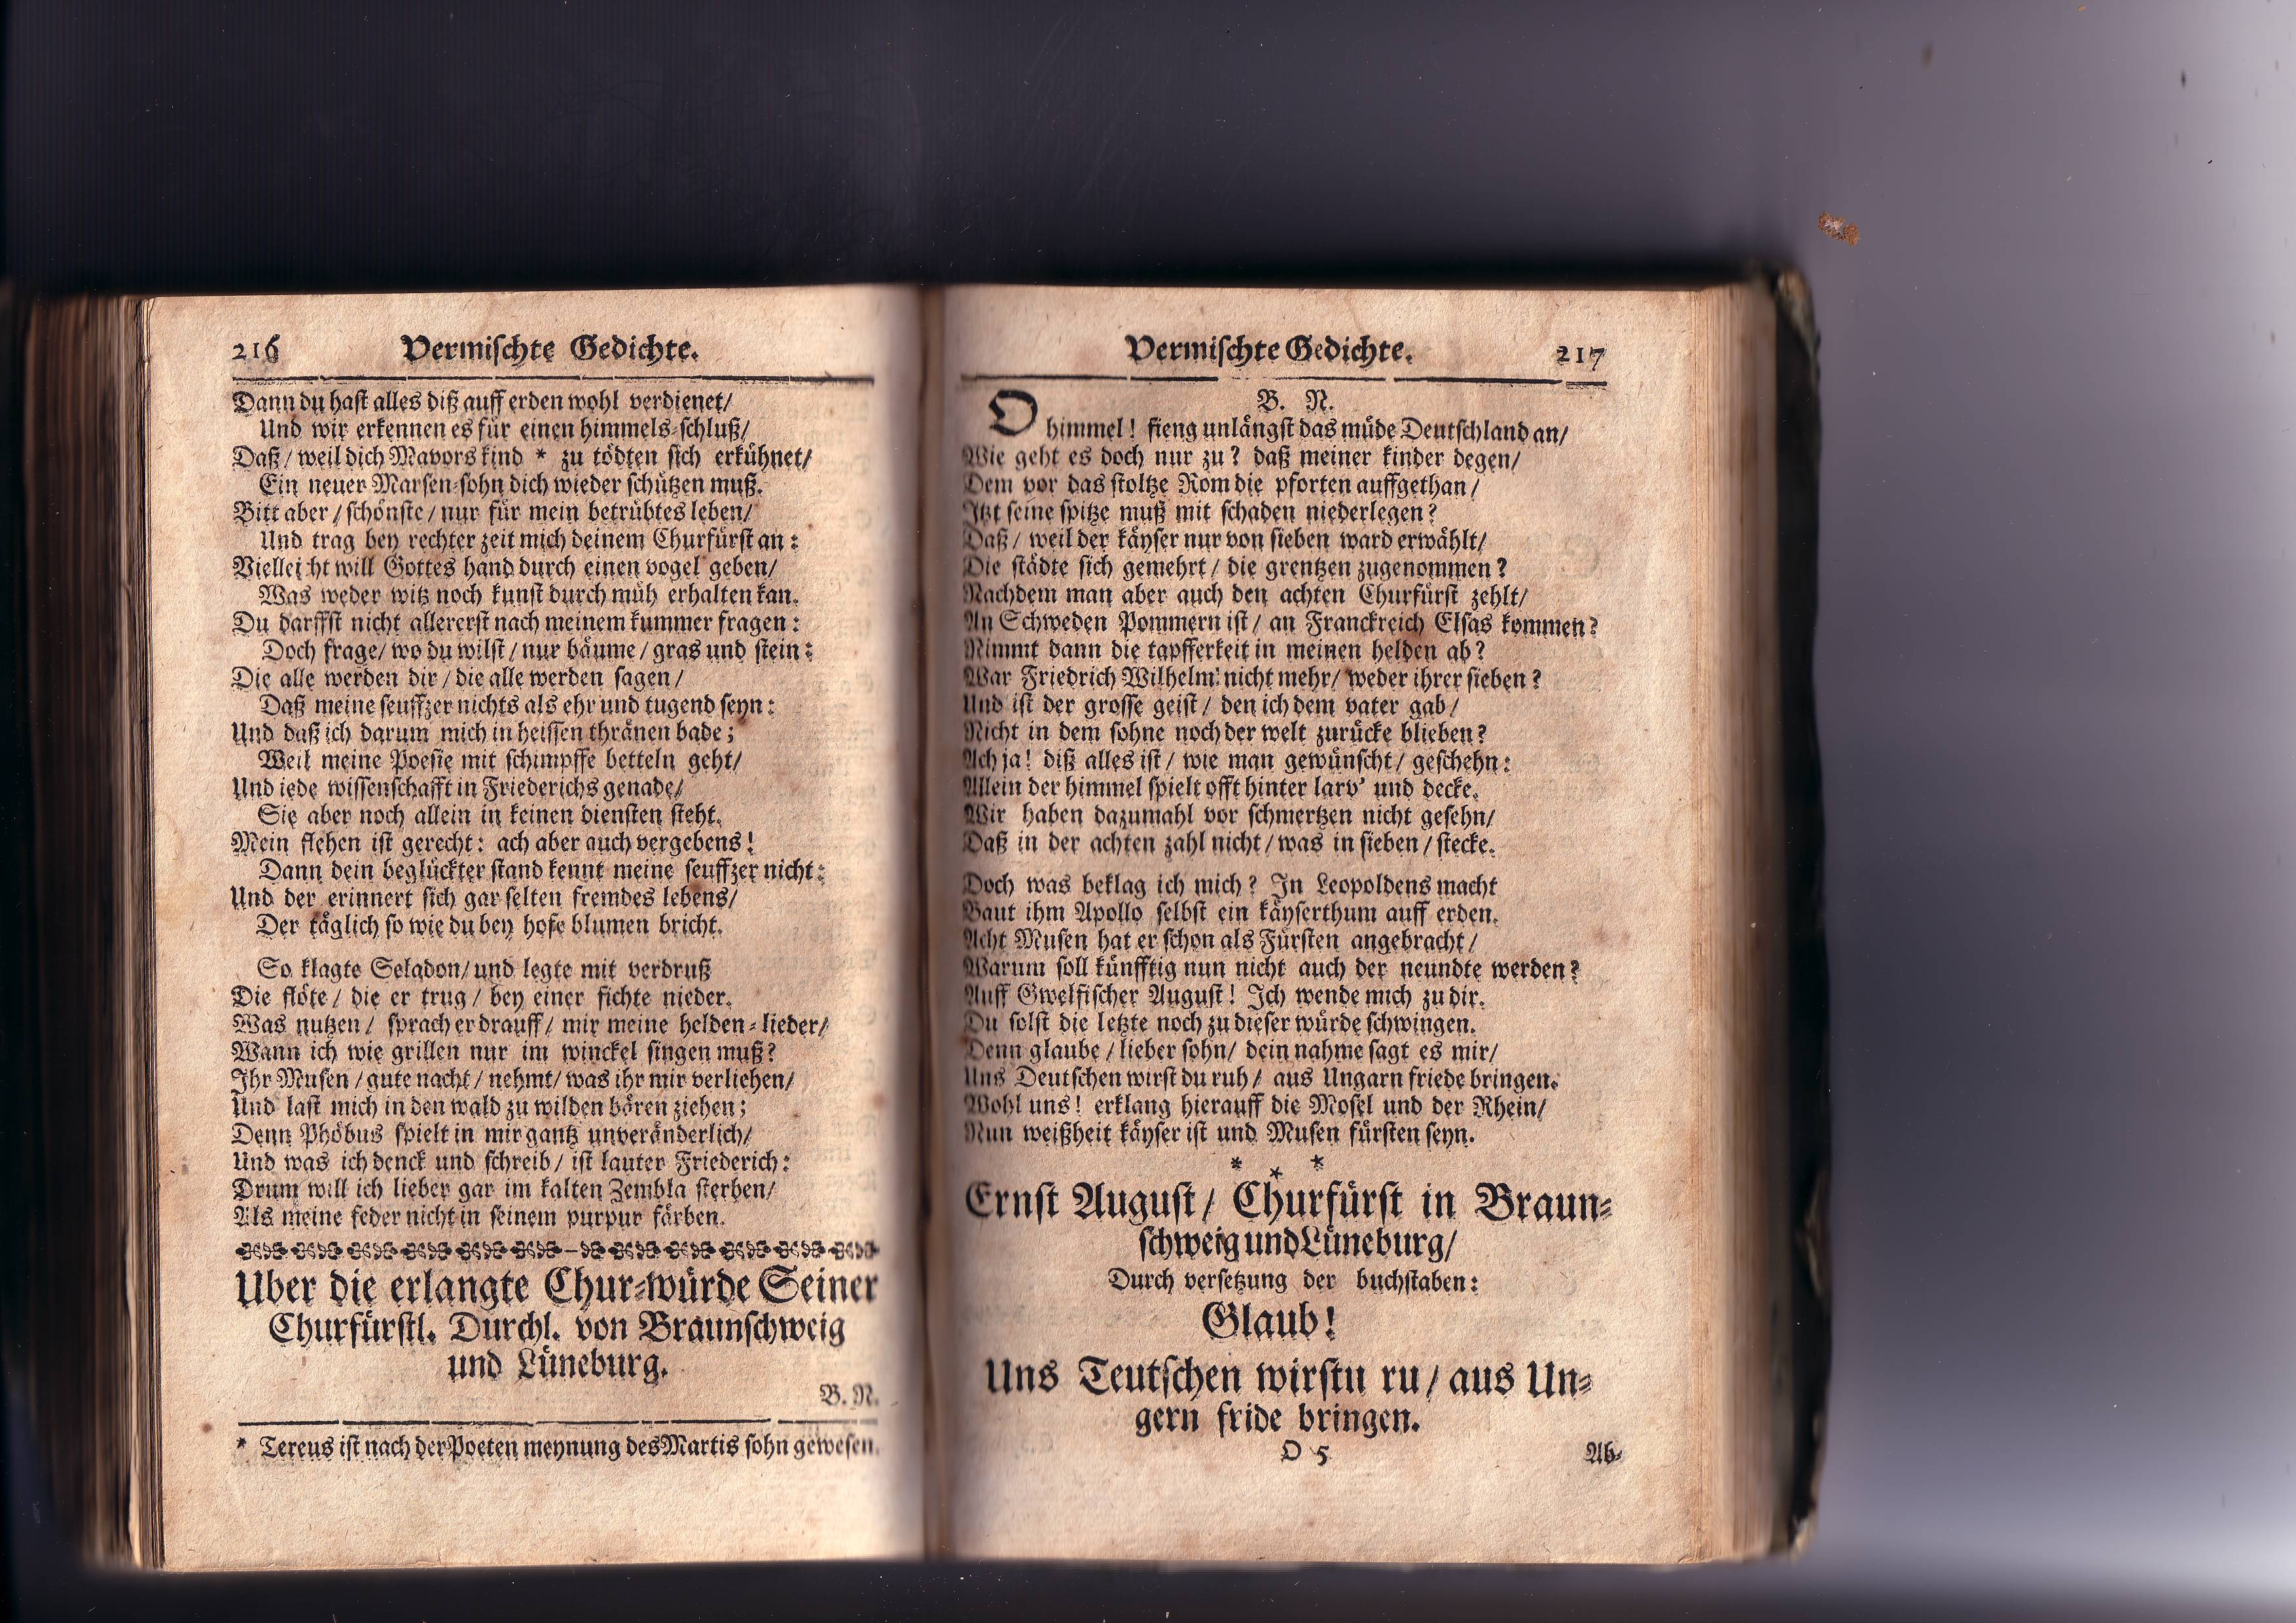 216 Vermischte Gedichte.
Dann du hast alles diß auff erden wohl verdienet/
Und wir erkennen es für einen himmels-schluß/
Daß/ weil dich Mavors kind * zu tödten sich erkühnet/
Ein neuer Marsen-sohn dich wieder schützen muß.
Bitt aber/ schönste/ nur für mein betrübtes leben/
Und trag bey rechter zeit mich deinem Churfürst an:
Vielleicht will Gottes hand durch einen vogel geben/
Was weder witz noch kunst durch müh erhalten kan.
Du darffst nicht allererst nach meinem kummer fragen:
Doch frage/ wo du wilst/ nur bäume/ gras und stein:
Die alle werden dir/ die alle werden sagen/
Daß meine seuffzer nichts als ehr und tugend seyn:
Und daß ich darum mich in heissen thränen bade;
Weil meine Poesie mit schimpffe betteln geht/
Und iede wissenschafft in Friederichs genade/
Sie aber noch allein in keinen diensten steht.
Mein flehen ist gerecht: ach aber auch vergebens!
Dann dein beglückter stand kennt meine seuffzer nicht:
Und der erinnert sich gar selten fremdes lebens/
Der täglich so wie du bey hofe blumen bricht.
So klagte Seladon/ und legte mit verdruß
Die flöte/ die er trug/ bey einer fichte nieder.
Was nutzen/ sprach er drauff/ mir meine helden-lieder/
Wann ich wie grillen nur im winckel singen muß?
Ihr Musen/ gute nacht/ nehmt/ was ihr mir verliehen/
Und last mich in den wald zu wilden bären ziehen;
Denn Phöbus spielt in mir gantz unveränderlich/
Und was ich denck und schreib/ ist lauter Friederich:
Drum will ich lieber gar im kalten Zembla sterben/
Als meine feder nicht in seinem purpur färben.
Uber die erlangte Chur-würde Seiner
Churfürstl. Durchl. von Braunschweig
und Lüneburg.
B. N.
* Tereus ist nach der Poeten meynung des Martis sohn gewesen.
Vermischte Gedichte. 217
B. N.
O himmel! fieng unlängst das müde Deutschland an/
Wie geht es doch nur zu? daß meiner kinder degen/
Dem vor das stoltze Rom die pforten auffgethan/
Itzt seine spitze muß mit schaden niederlegen?
Daß/ weil der käyser nur von sieben ward erwählt/
Die städte sich gemehrt/ die grentzen zugenommen?
Nachdem man aber auch den achten Churfürst zehlt/
An Schweden Pommern ist/ an Franckreich Elsas kommen?
Nimmt dann die tapfferkeit in meinen helden ab?
War Friedrich Wilhelm nicht mehr/ weder ihrer sieben?
Und ist der grosse geist/ den ich dem vater gab/
Nicht in dem sohne noch der welt zurücke blieben?
Ach ja! diß alles ist/ wie man gewünscht/ geschehn:
Allein der himmel spielt offt hinter larv' und decke.
Wir haben dazumahl vor schmertzen nicht gesehn/
Daß in der achten zahl nicht/ was in sieben/ stecke.
Doch was beklag ich mich? In Leopoldens macht
Baut ihm Apollo selbst ein käyserthum auff erden.
Acht Musen hat er schon als Fürsten angebracht/
Warum soll künfftig nun nicht auch der neundte werden?
Auff Gwelfischer August! Ich wende mich zu dir.
Du solst die letzte noch zu dieser würde schwingen.
Denn glaube/ lieber sohn/ dein nahme sagt es mir/
Uns Deutschen wirst du ruh/ aus Ungarn friede bringen.
Wohl uns! erklang hierauff die Mosel und der Rhein/
Nun weißheit käyser ist und Musen fürsten seyn.
* * *
Ernst August/ Churfürst in Braun-
schweig und Lüneburg/
Durch versetzung der buchstaben:
Glaub!
Uns Teutschen wirstu ru/ aus Un-
gern fride bringen.
O 5 Ab-